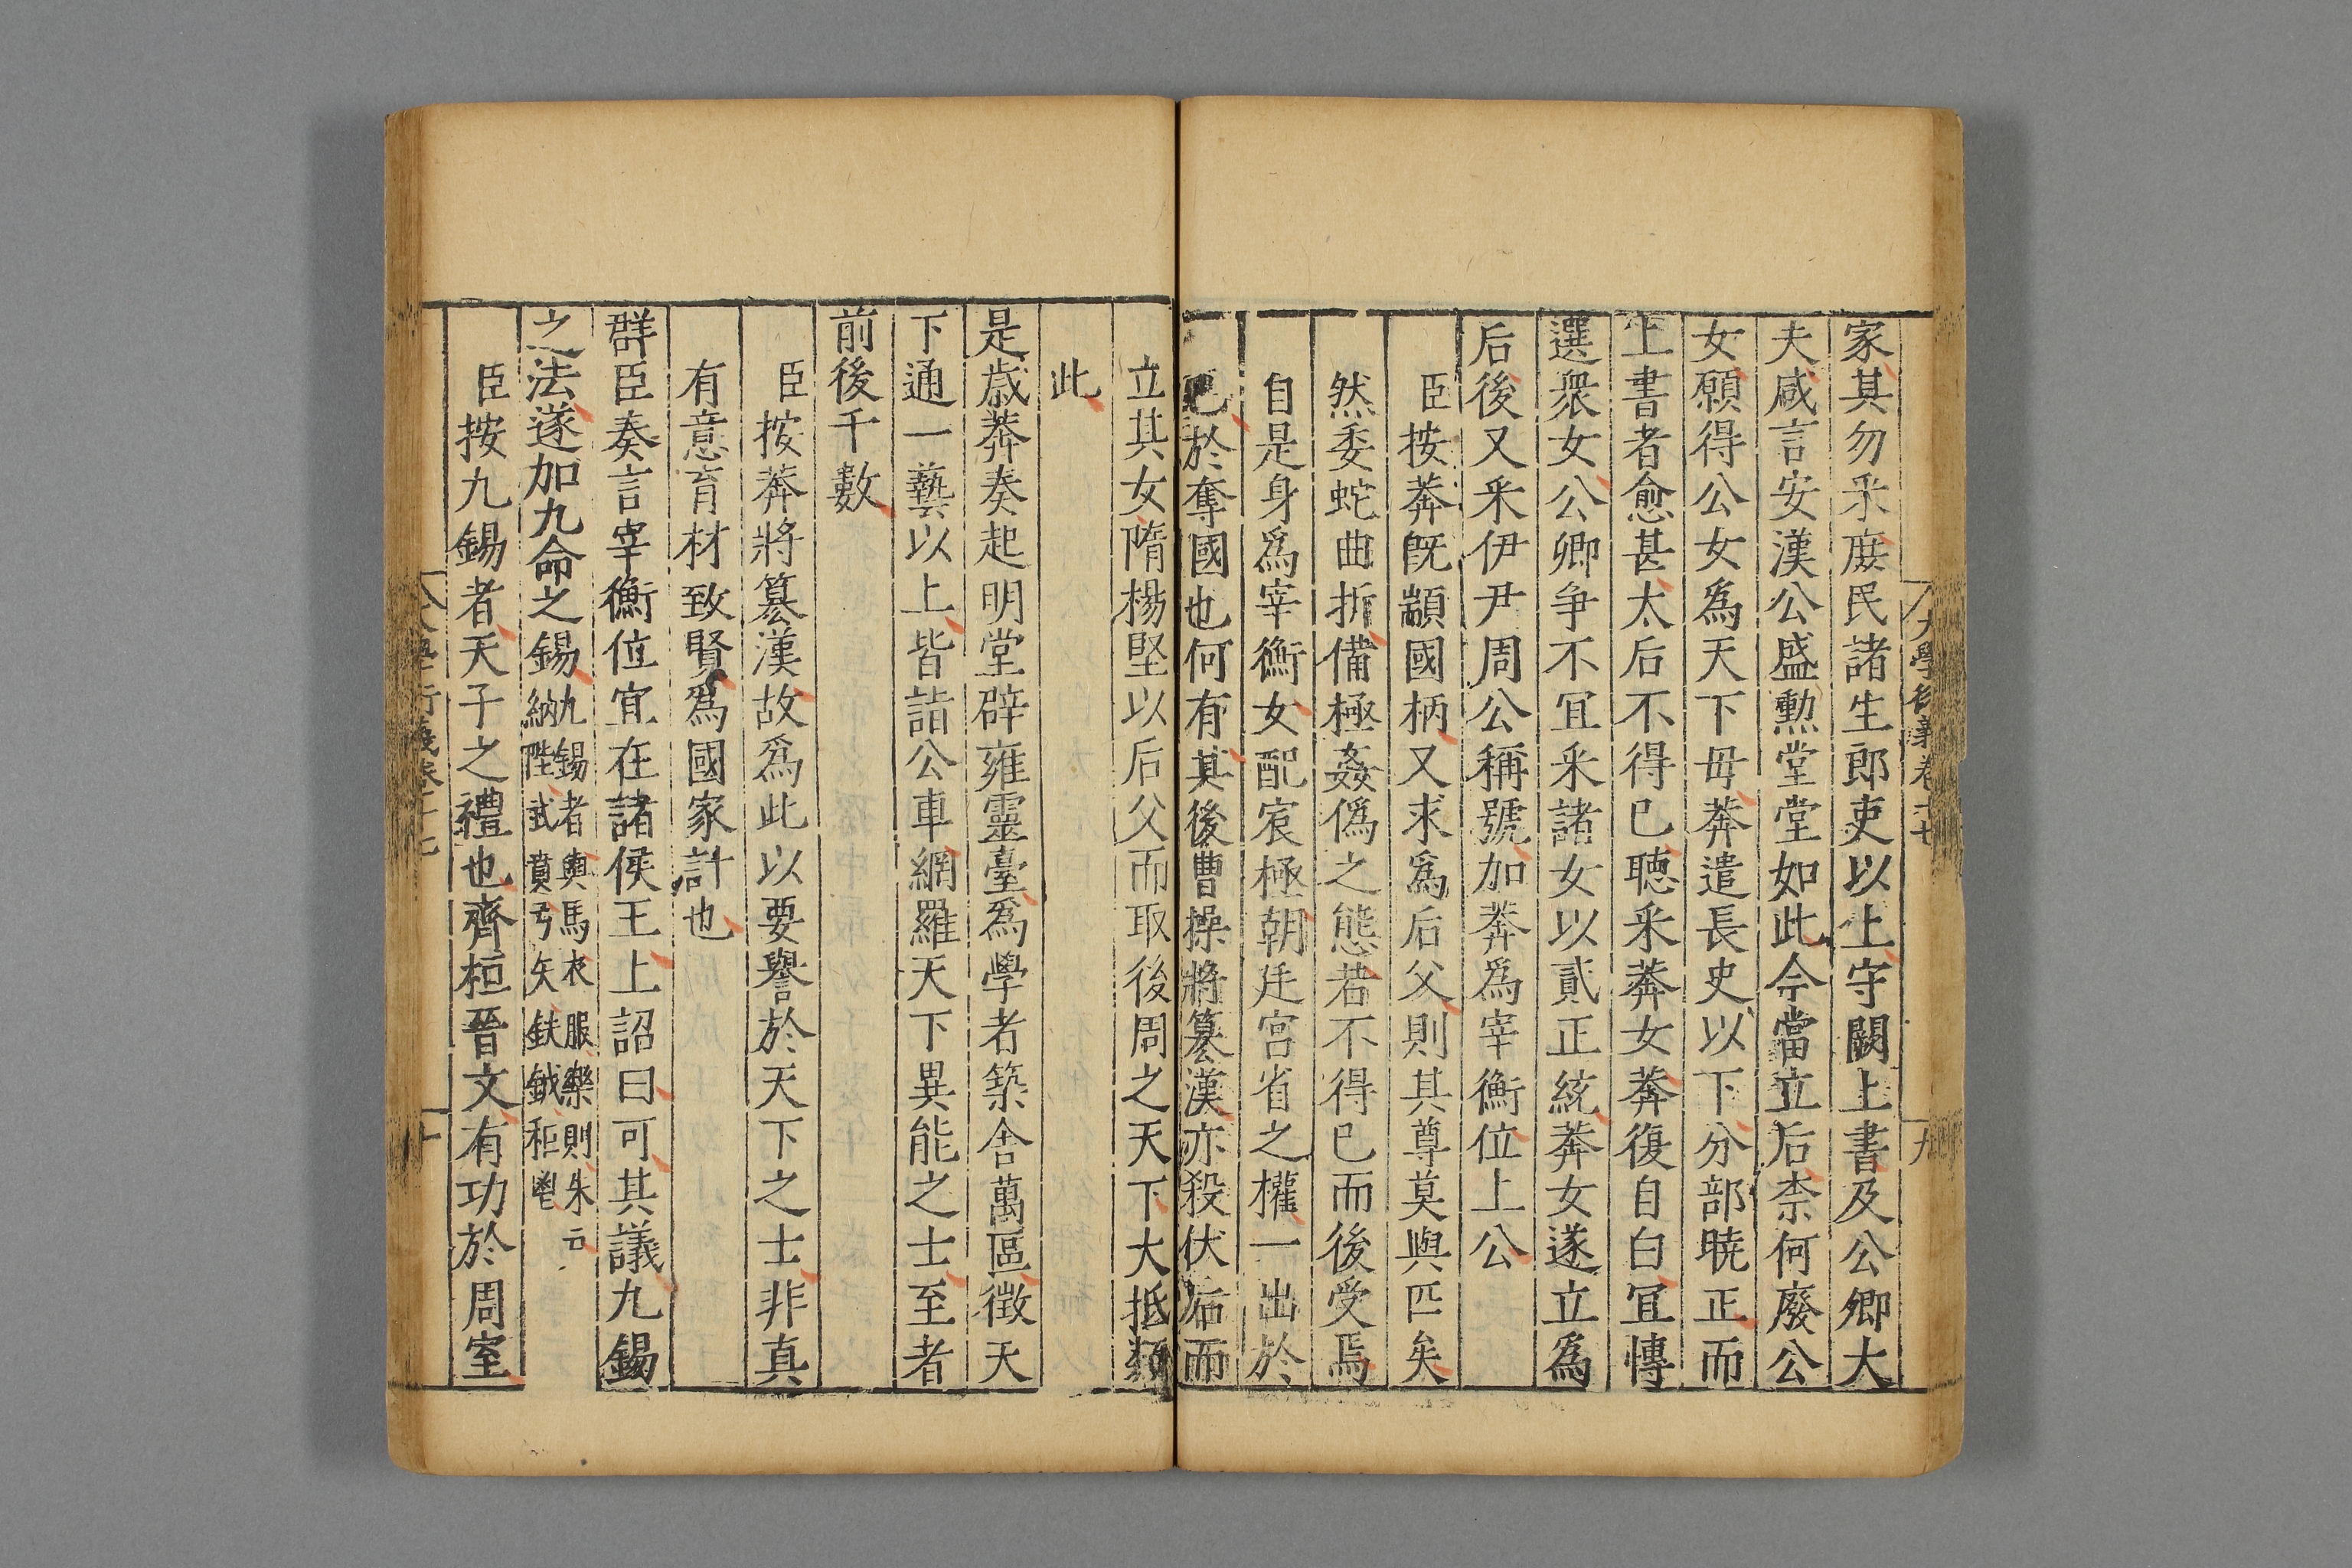 大學衍義卷十七
九
家其勿采庻民諸生郎吏以上守闕上書及公卿大
夫咸言安漢公盛勲堂堂如此今當立后柰何廢公
女願得公女為天下毋莽遣長史以下分部暁正而
上書者愈甚太后不得已聴采莽女莽復自白冝愽
選衆女公卿争不冝采諸女以貳正統莽女遂立為
后後又采伊尹周公稱號加莽為宰衡位上公
臣按莽既顓國柄又求為后父則其尊莫與匹矣
然委蛇曲折備極姦偽之態若不得已而後受焉
自是身為宰衡女配宸極朝廷宮省之權一出於
己於奪國也何有其後曹操將簒漢亦殺伏后而
立其女隋楊堅以后父而取後周之天下大抵類
此
是歲莽奏起明堂辟雍靈臺為學者築舍萬區徴天
下通一藝以上皆詣公車網羅天下異能之士至者
前後千數
臣按莽將簒漢故為此以要譽於天下之士非真
有意育材致賢為國家計也
群臣奏言宰衡位宜在諸侯王上詔曰可其議九錫
之法遂加九命之錫九錫者輿馬衣服樂則朱戶
納陛武賁弓矢鈇鉞秬鬯
臣按九錫者天子之禮也齊桓晉文有功於周室
大學衍義卷十七
十